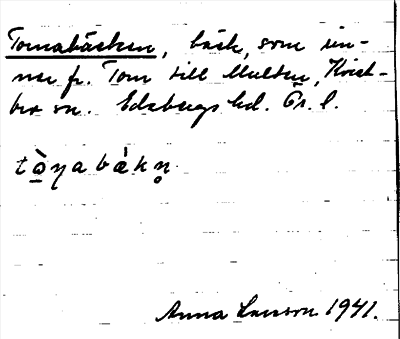 Tomabäcken, bäck, som rin-
ner fr. Tom till Multen, Kvist-
bro sn. Edsbergs hd. Ör. l.
tò̱ŋabàkn̥
Anna Larsson 1941.